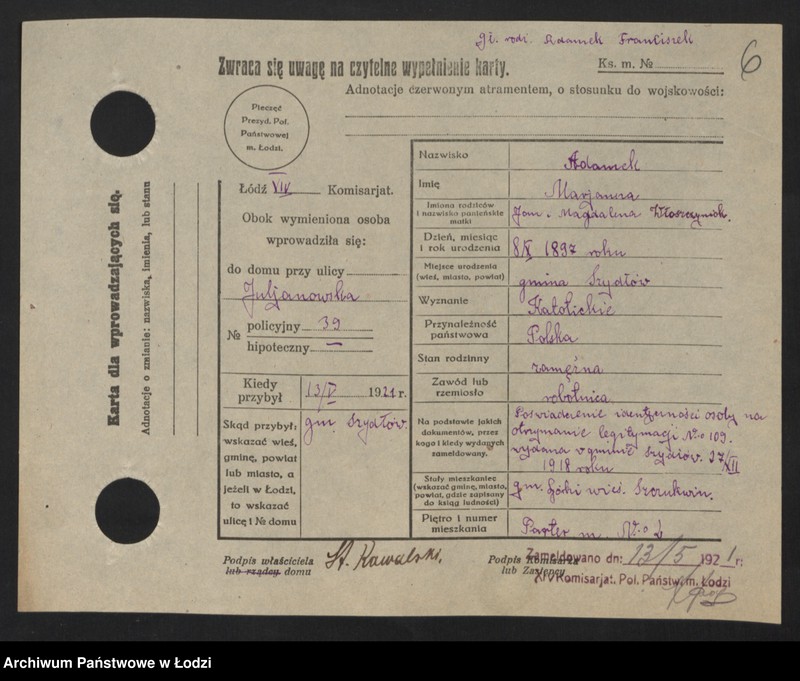 gł. rodz. Adamek Franciszek
6
Zwraca się uwagę na czytelne wypełnienie karty.
Ks. m. №
Adnotacje czerwonym atramentem, o stosunku do wojskowości:
Pieczęć
Prezyd. Pol.
Państwowej
m. Łodzi.
Karta dla wprowadzających się.
Adnotacje o zmianie: nazwiska, imienia, lub stanu
Łódź XIV Komisarjat.
Obok wymieniona osoba
wprowadziła się:
do domu przy ulicy
Juljanowska
№ policyjny 39
hipoteczny —
Kiedy przybył 13/V 1921 r.
Skąd przybył: gm. Szydłów.
wskazać wieś,
gminę, powiat
lub miasto, a
jeżeli w Łodzi,
to wskazać
ulicę i № domu
Nazwisko Adamek
Imię Marjanna
Imiona rodziców i nazwisko panieńskie matki Jan i Magdalena
Dzień, miesiąc i rok urodzenia 8/X 1897 roku
Miejsce urodzenia (wieś, miasto, powiat) gmina Szydłów
Wyznanie Katolickie
Przynależność państwowa Polska
Stan rodzinny zamężna
Zawód lub rzemiosło robotnica
Na podstawie jakich dokumentów, przez kogo i kiedy wydanych zameldowany.
Poświadczenie identyczności osoby na
otrzymanie legitymacji No 109.
wydana w gminie Szydłów. 27/XII
1918 roku
Stały mieszkaniec (wskazać gminę, miasto, powiat, gdzie zapisany do ksiąg ludności)
gm. Górki wieś. Szczukwin.
Piętro i numer mieszkania Parter m. No 2
Podpis właściciela
lub rządcy domu
St. Kowalski.
Podpis Komisarza
lub Zastępcy
Zameldowano dn: 13/5 1921 r:
XIV Komisarjat. Pol. Państw. m. Łodzi
Archiwum Państwowe w Łodzi